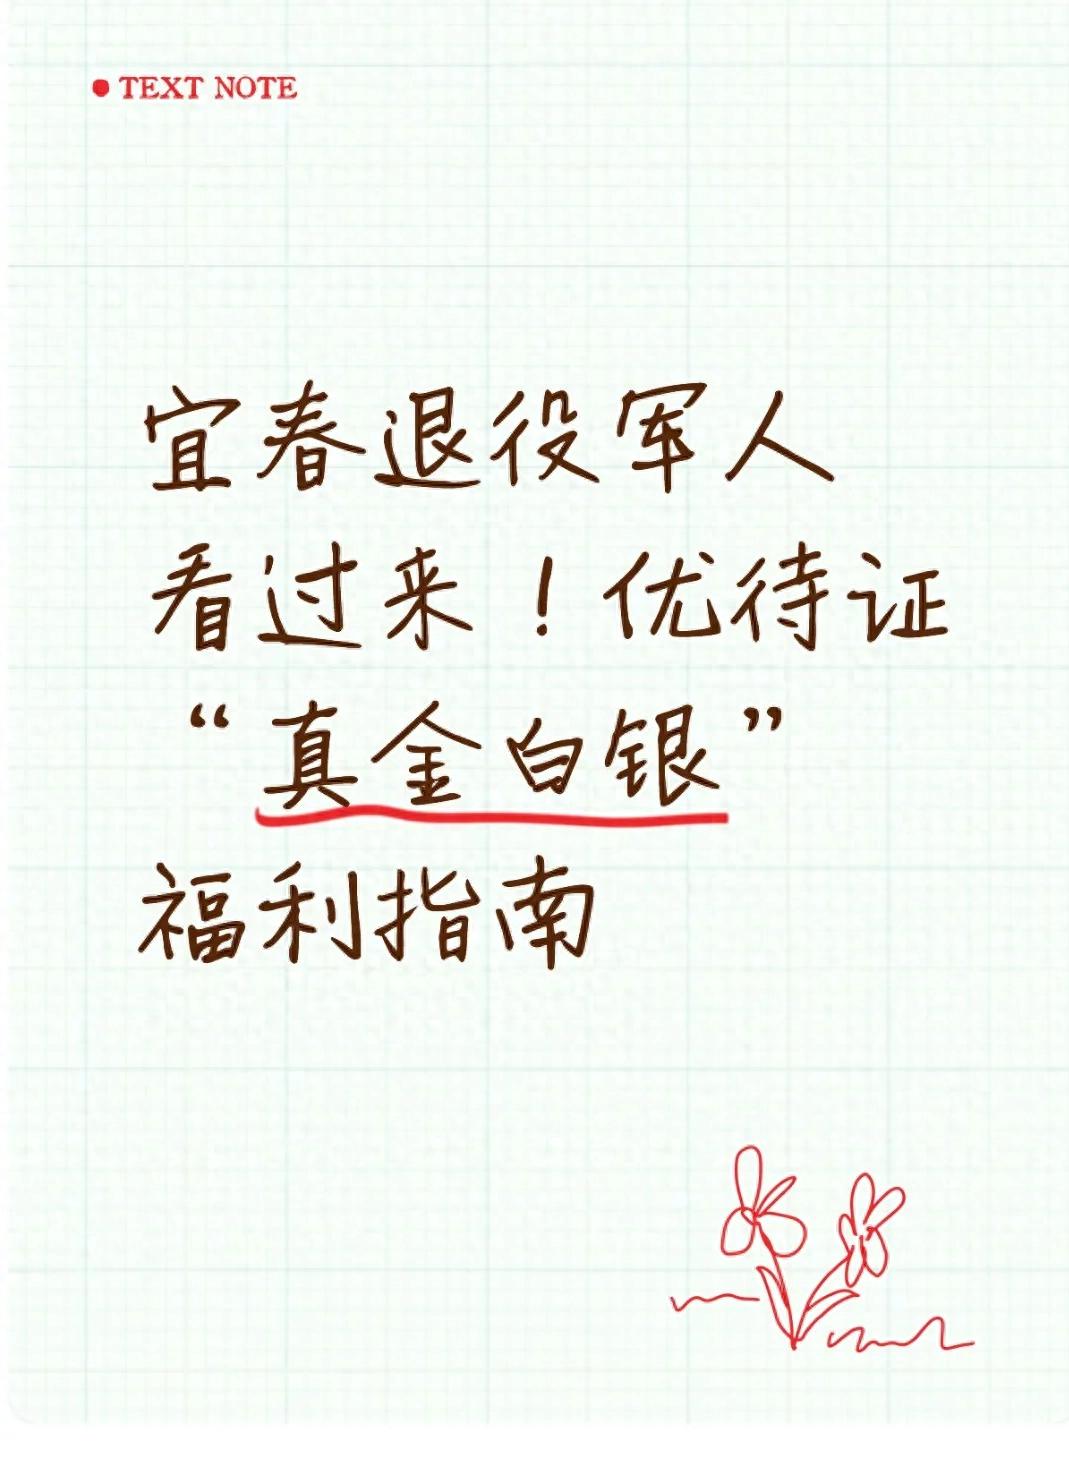 TEXT NOTE
宜春退役军人
看过来！优待证
“真金白银”
福利指南